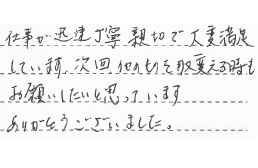 仕事が迅速丁寧親切で大変満足
しています。次回、他のものを取変える時も
お願いしたいと思っています
ありがとうございました。